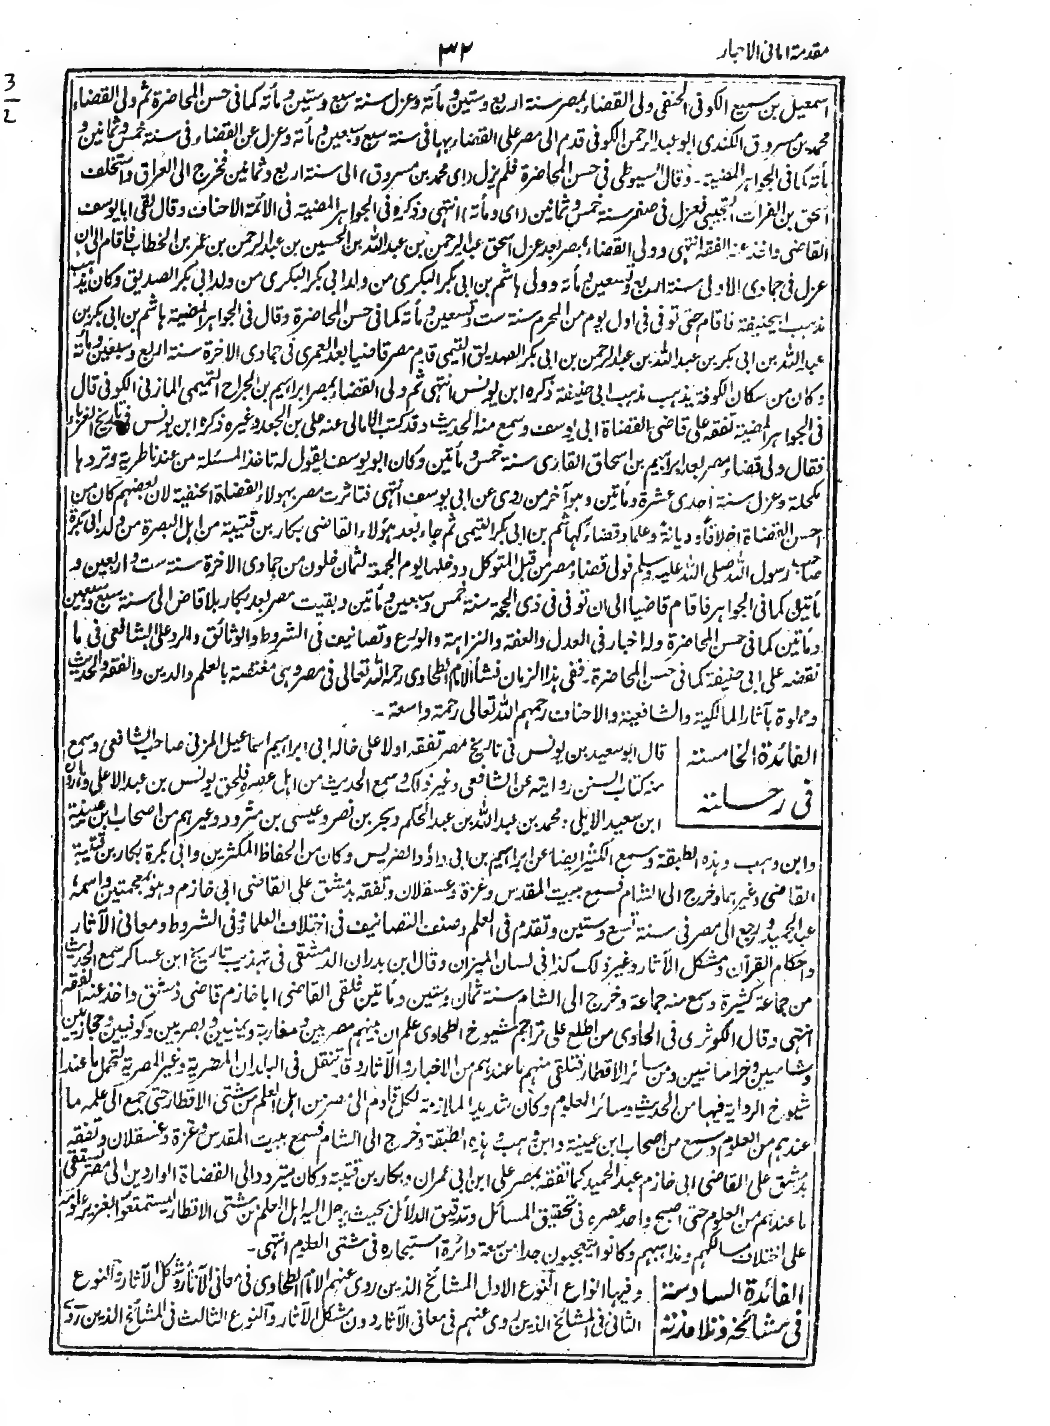 مقدمة امانی الاحبار
٣٢
اسمعیل بن سمیع الکوفی الحنفی ولی القضاء بمصر سنة اربع وستین ومأتة وعزل سنة سبع وستین ومأتة کما فی حسن المحاضرة ثم ولی القضاء
محمد بن مسروق الکندی ابو عبدالرحمن الکوفی قدم الی مصر علی القضاء بها فی سنة سبع وسبعین ومأتة وعزل عن القضاء فی سنة خمس وثمانین و
مأتة کما فی الجواهر المضیة۔ وقال السیوطی فی حسن المحاضرة فلم یزل (ای محمد بن مسروق) الی سنة اربع وثمانین فخرج الی العراق واستخلف
اسحق بن الفرات التجیبی فعزل فی صفر سنة خمس وثمانین (ای ومأتة) انتهی وذکره فی الجواهر المضیة فی الائمة الاحناف وقال لقی ابا یوسف
القاضی واخذ عنه الفقه انتهی وولی القضاء بمصر بعد عزل اسحق عبدالرحمن بن عبدالله بن الحسین بن عبدالرحمن بن عمر بن الخطاب فاقام الی ان
عزل فی جمادی الاولی سنة اربع وتسعین ومأتة وولی هاشم بن ابی بکر البکری من ولد ابی بکر الصدیق وکان یذهب
مذهب ابی حنیفة فاقام حتی توفی فی اول یوم من المحرم سنة ست وتسعین ومأتة کما فی حسن المحاضرة وقال فی الجواهر المضیة هاشم بن ابی بکر بن
عبدالله بن ابی بکر بن عبدالله بن عبدالرحمن بن ابی بکر الصدیق التیمی قدم مصر قاضیا بعد العمری فی جمادی الاخرة سنة اربع وتسعین ومأتة
وکان من سکان الکوفة یذهب مذهب ابی حنیفة ذکره ابن یونس انتهی ثم ولی القضاء بمصر ابراهیم بن الجراح التمیمی المازنی الکوفی قال
فی الجواهر المضیة تفقه علی قاضی القضاة ابی یوسف وسمع منه الحدیث وقد کتب الامالی عنه علی بن الجعد وغیره ذکره ابن یونس فی تاریخ الغرباء
فقال ولی قضاء مصر بعد ابراهیم بن اسحاق القاری سنة خمس ومأتین وکان ابو یوسف یقول له تاخذ المسئلة من عندنا طریة وتردها
مکحلة وعزل سنة احدی عشرة ومأتین وهو آخر من روی عن ابی یوسف انتهی فتاثرت مصر بهولاء القضاة الحنفیة لان بعضهم کان من
احسن القضاة اخلاقاً ودیانة وعلما وقضاء کهاشم بن ابی بکر التیمی ثم جاء بعد هؤلاء القاضی بکار بن قتیبة من اهل البصرة من ولد ابی بکرة
صاحب رسول الله صلی الله علیه وسلم فولی قضاء مصر من قبل المتوکل ودخلها یوم الجمعة لثمان خلون من جمادی الاخرة سنة ست واربعین و
مأتین کما فی الجواهر فاقام قاضیا الی ان توفی فی ذی الحجة سنة خمس وسبعین ومأتین وبقیت مصر بعد بکار بلا قاض الی سنة سبع وسبعین
ومأتین کما فی حسن المحاضرة وله اخبار فی العدل والعفة والنزاهة والورع وتصانیف فی الشروط والوثائق والرد علی الشافعی فی ما
نقضه علی ابی حنیفة کما فی حسن المحاضرة۔ ففی هذا الزمان نشأ الامام الطحاوی رحمه الله تعالی فی مصر وهی مغتصة بالعلم والدین والفقه والحدیث
ومملوة بآثار المالکیة والشافعیة والاحناف رحمهم الله تعالی رحمة واسعة ۔
الفائدة الخامسة
فی رحلته
قال ابو سعید بن یونس فی تاریخ مصر تفقه اولا علی خاله ابی ابراهیم اسماعیل المزنی صاحب الشافعی وسمع
منه کتاب السنن روایته عن الشافعی وغیر ذلک وسمع الحدیث من اهل عصره فلحق یونس بن عبدالاعلی وهارون
ابن سعید الایلی ومحمد بن عبدالله بن عبدالحکم وبحر بن نصر وعیسی بن مثرود وغیرهم من اصحاب ابن عیینة
وابن وهب وهذه الطبقة وسمع الکثیر ایضا عن ابراهیم بن ابی داؤد الضریس وکان من الحفاظ المکثرین وابی بکرة بکار بن قتیبة
القاضی وغیرهما وخرج الی الشام فسمع ببیت المقدس وغزة وعسقلان وتفقه بدمشق علی القاضی ابی خازم وهو بمعجمتین واسمه
عبدالحمید ورجع الی مصر فی سنة تسع وستین وتقدم فی العلم وصنف التصانیف فی اختلاف العلماء وفی الشروط ومعانی الآثار
واحکام القرآن ومشکل الآثار وغیر ذلک کذا فی لسان المیزان وقال ابن بدران الدمشقی فی تهذیب تاریخ ابن عساکر سمع الحدیث
من جماعة کثیرة وسمع منه جماعة وخرج الی الشام سنة ثمان وستین ومأتین فلقی القاضی ابا خازم قاضی دمشق واخذ عنه الفقه
انتهی وقال الکوثری فی الحاوی من اطلع علی تراجم شیوخ الطحاوی علم ان بینهم مصریین ومغاربة ویمنیین وبصریین وکوفیین وحجازیین
وشامیین وخراسانیین ومن سائر الاقطار فتلقی منهم ما عندهم من الاخبار والآثار وقد تنقل فی البلدان المصریة وغیر المصریة لتحمل ما عند
شیوخ الروایة فیها من الحدیث وسائر العلوم وکان شدید الملازمة لکل قادم الی مصر من اهل العلم من شتی الاقطار حتی جمع الی علمه ما
عندهم من العلوم وسمع من اصحاب ابن عیینة وابن وهب وهذه الطبقة وخرج الی الشام فسمع ببیت المقدس وغزة وعسقلان وتفقه
بدمشق علی القاضی ابی خازم عبدالحمید کما تفقه بمصر علی ابن ابی عمران وبکار بن قتیبة وکان یتردد الی القضاة الواردین الی مصر یستقی
ما عندهم من العلوم حتی اصبح واحد عصره فی تحقیق المسائل وتدقیق الدلائل بحیث یرحل الیه اهل العلم من شتی الاقطار لیستمتعوا بغزیر علومه
علی اختلاف مسالکهم ومذاهبهم وکانوا یتعجبون جدا من سعة دائرة استبحاره فی شتی العلوم انتهی۔
الفائدة السادسة
فی مشائخه وتلامذته
وفیها انواع النوع الاول المشائخ الذین روی عنهم الامام الطحاوی فی معانی الآثار ومشکل الآثار والنوع
الثانی فی المشائخ الذین روی عنهم فی معانی الآثار دون مشکل الآثار والنوع الثالث فی المشائخ الذین روی